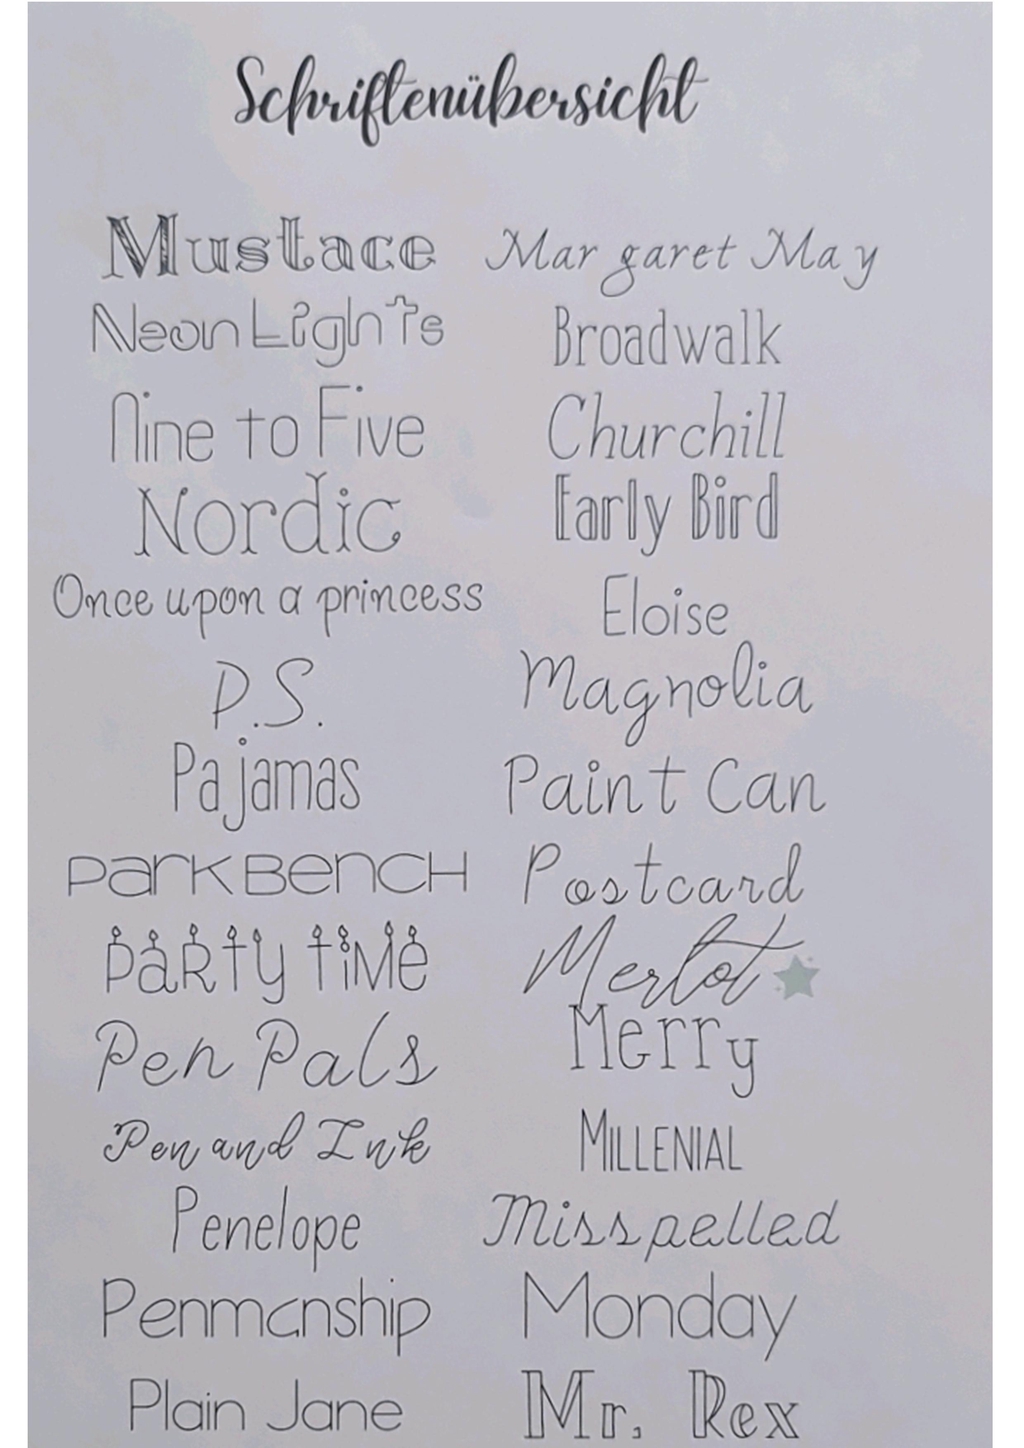 Schriftenübersicht
Mustace
Neon Lights
Nine to Five
Nordic
Once upon a princess
P.S.
Pajamas
Park Bench
Party Time
Pen Pals
Pen and Ink
Penelope
Penmanship
Plain Jane
Margaret May
Broadwalk
Churchill
Early Bird
Eloise
Magnolia
Paint Can
Postcard
Merlot
Merry
MILLENIAL
Misspelled
Monday
Mr. Rex